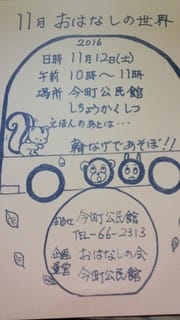 11月 おはなしの世界
2016
日時 11月12日(土)
午前 10時〜11時
場所 今町公民館
しちょうかくしつ
えほんのあとは…
輪なげであそぼ!!
今町公民館
TEL-66-2313
企画 おはなしの会
運営 今町公民館